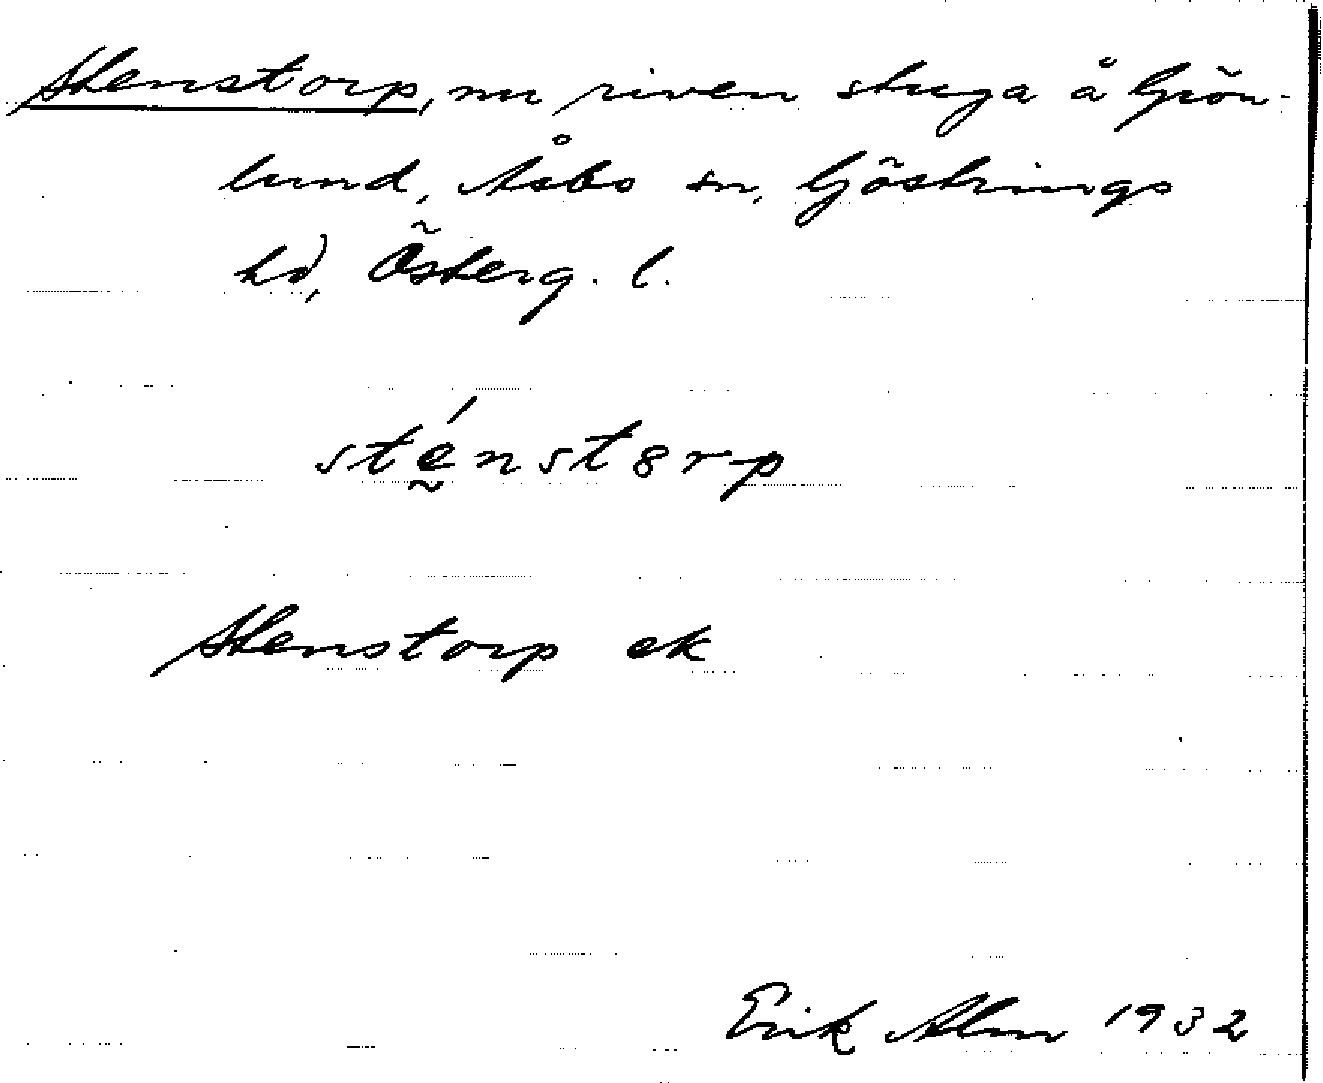 Stenstorp, nu riven stuga å Grön-
lund, Åsbo sn, Göstrings
hd, Österg. l.
stḛ́nstȣrp
Stenstorp ek
Erik Alm 1932